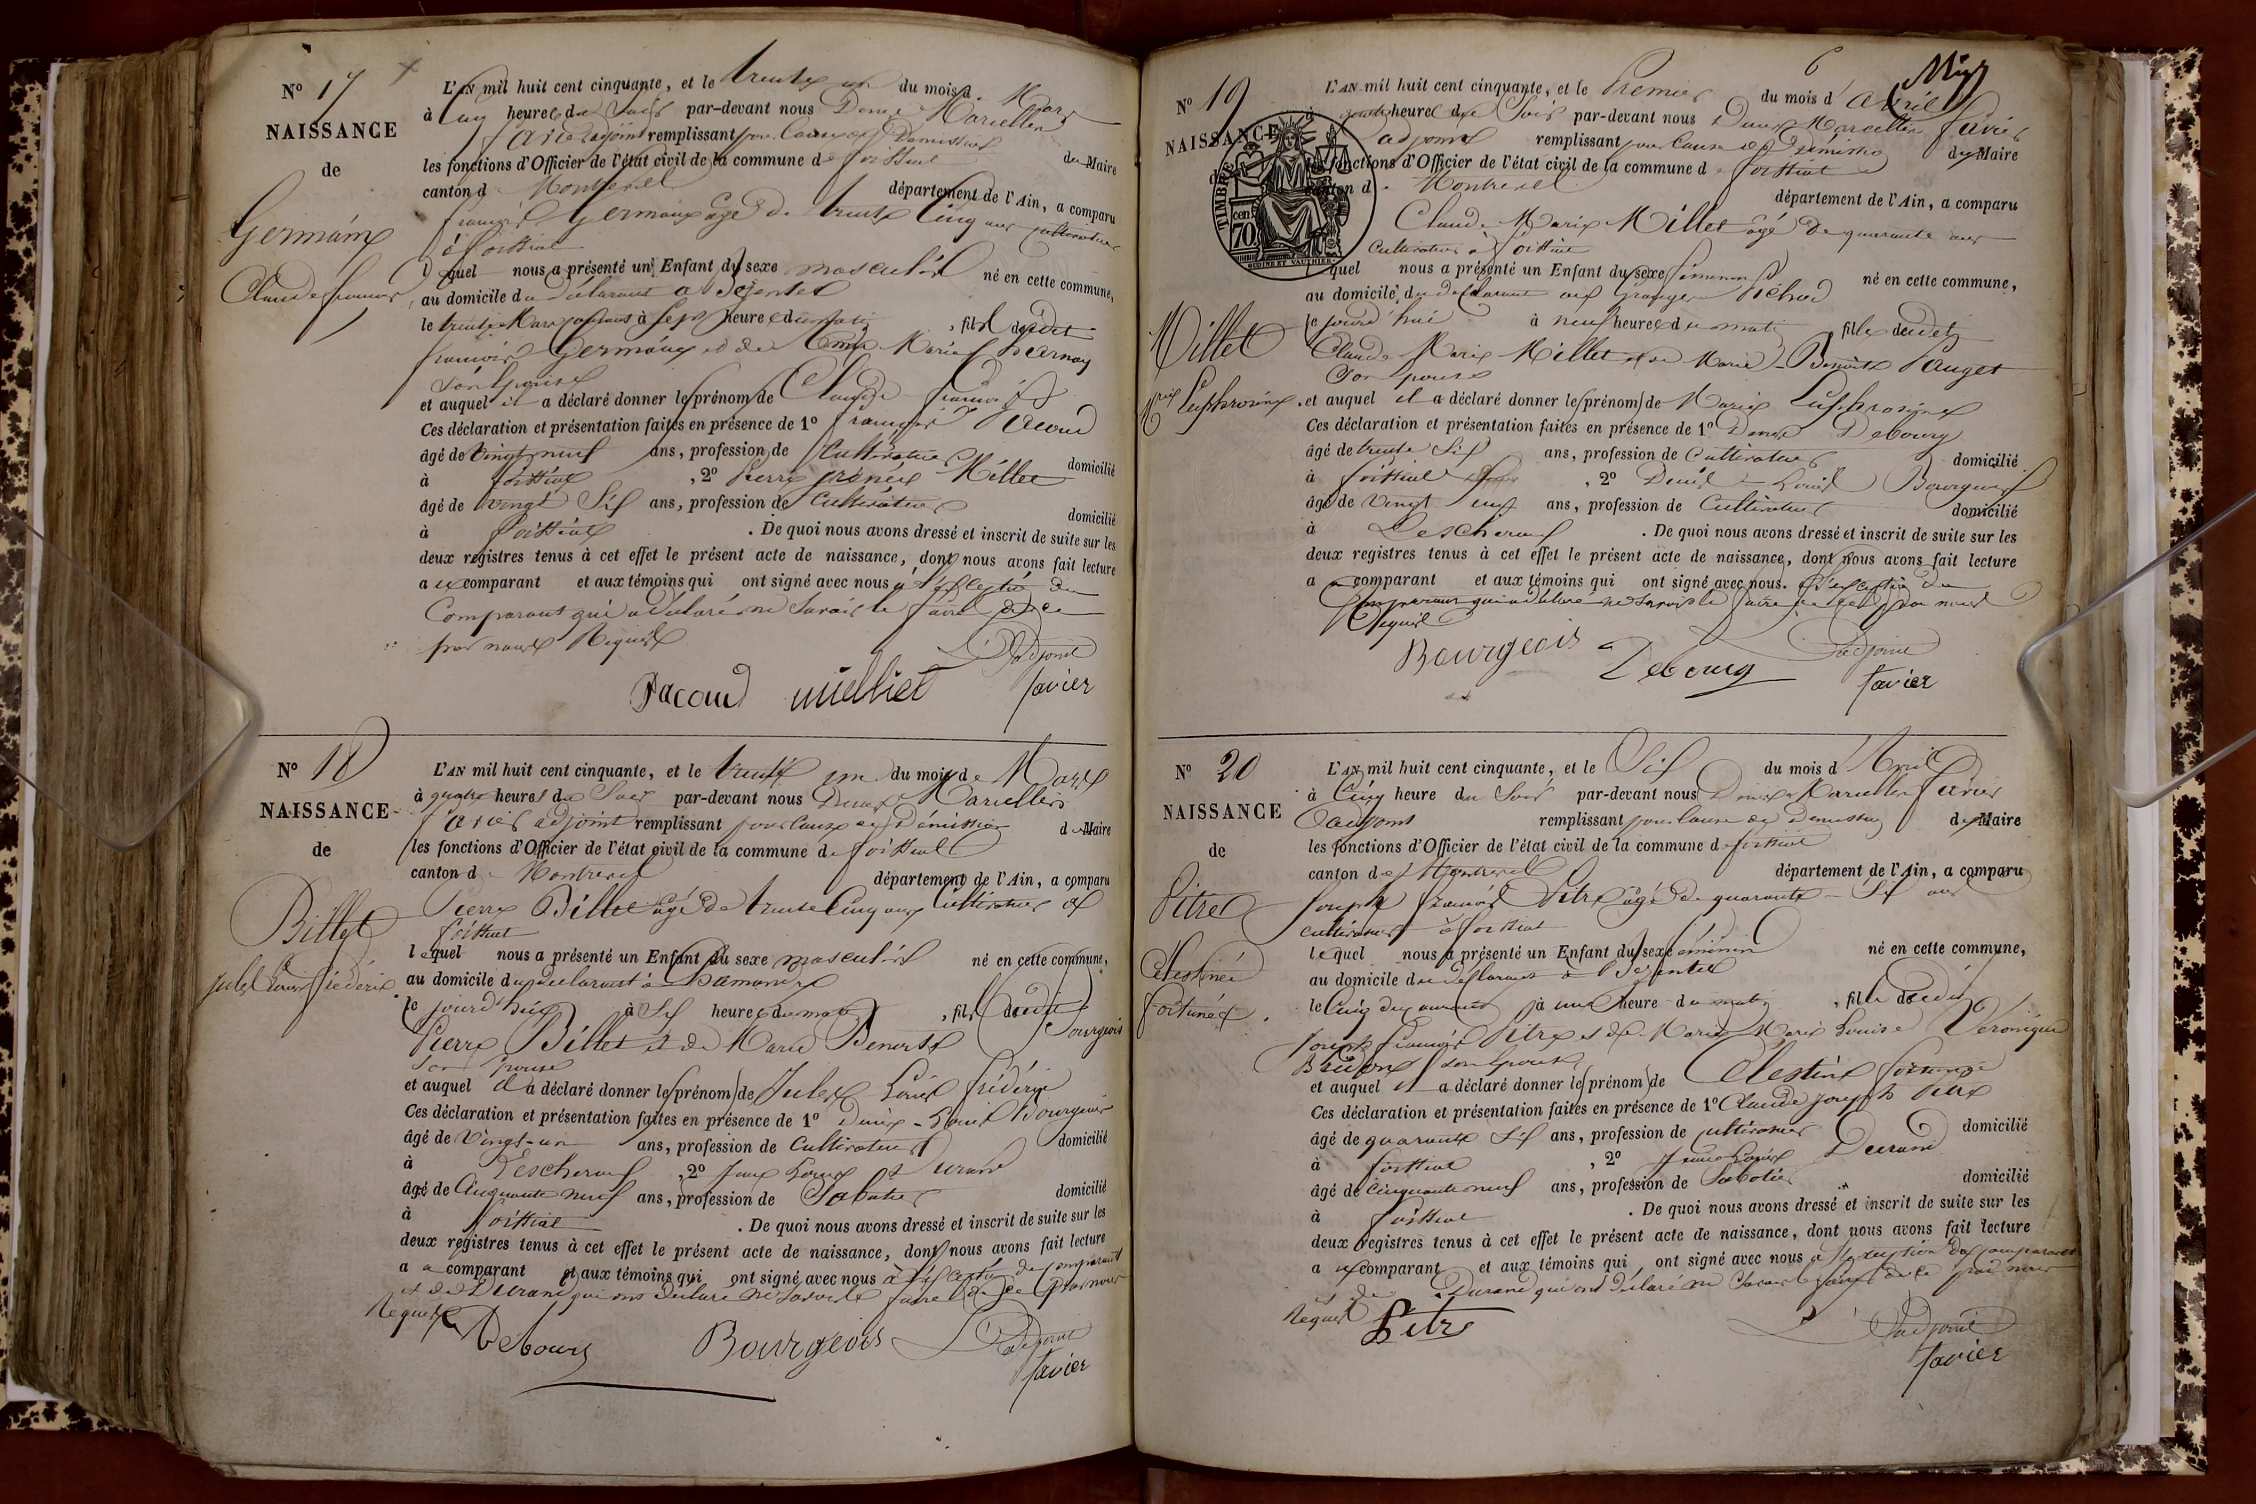 N° 17
NAISSANCE
de
Germain
Claude françois
L'AN mil huit cent cinquante, et le trente un du mois d Mars
à Cinq heures du Soir par-devant nous Denis Marcellin
favier adjoint remplissant pour Cause de Démission du Maire
les fonctions d'Officier de l'état civil de la commune de foissiat
canton d Montrevel département de l'Ain, a comparu
françois Germain agé de trente Cinq ans cultivateur
à foissiat
l quel nous a présenté un Enfant du sexe masculin né en cette commune,
au domicile du déclarant
le trente Mars à Sept heures du matin, fils dudit
françois Germain et de Marie
Son épouse
et auquel il a déclaré donner les prénoms de Claude françois
Ces déclaration et présentation faites en présence de 1° françois Pacoud
âgé de vingt neuf ans, profession de Cultivateur domicilié
à foissiat, 2° Pierre Millet
âgé de vingt Six ans, profession de Cultivateur domicilié
à foissiat. De quoi nous avons dressé et inscrit de suite sur les
deux registres tenus à cet effet le présent acte de naissance, dont nous avons fait lecture
a u comparant et aux témoins qui ont signé avec nous à l'exception du
Comparant qui a déclaré ne Savoir le faire de ce
par nous Requis
L'adjoint
Pacoud milliet favier
N° 18
NAISSANCE
de
Billet
jules Louis frédéric
L'AN mil huit cent cinquante, et le trente un du mois de Mars
à quatre heures du Soir par-devant nous Denis Marcellin
favier adjoint remplissant pour Cause de Démission du Maire
les fonctions d'Officier de l'état civil de la commune de foissiat
canton d Montrevel département de l'Ain, a comparu
Pierre Billet agé de trente Cinq ans Cultivateur à
foissiat
lequel nous a présenté un Enfant du sexe masculin né en cette commune,
au domicile du déclarant à
le jourd'hui à Six heures du matin, fils dudit
Pierre Billet et de Marie Benoite Bourgeois
Son épouse
et auquel il a déclaré donner les prénoms de Jules Louis frédéric
Ces déclaration et présentation faites en présence de 1° Denis-Louis Bourgeois
âgé de vingt-un ans, profession de Cultivateur domicilié
à Lescheroux, 2° Jean Louis Durand
âgé de Cinquante neuf ans, profession de Sabotier domicilié
à foissiat. De quoi nous avons dressé et inscrit de suite sur les
deux registres tenus à cet effet le présent acte de naissance, dont nous avons fait lecture
a u comparant et aux témoins qui ont signé avec nous à l'exception du comparant
et de Durand qui ont déclaré ne Savoir le faire de ce par nous
Requis
Debourg Bourgeois L'adjoint
favier
6
N° 19
NAISSANCE
de
TIMBRE
cen
70
Millet
Marie Euphrosine
L'AN mil huit cent cinquante, et le Premier du mois d'avril
à heures du Soir par-devant nous Denis Marcellin favier
adjoint remplissant pour Cause de Démission du Maire
les fonctions d'Officier de l'état civil de la commune d foissiat
canton d Montrevel département de l'Ain, a comparu
Claude Marie Millet agé de quarante ans
Cultivateur à foissiat
lequel nous a présenté un Enfant du sexe féminin né en cette commune,
au domicile du déclarant
le jourd'hui à neuf heures du matin fille dudit
Claude Marie Millet et de Marie-Benoite Pauget
Son épouse
et auquel il a déclaré donner les prénoms de Marie Euphrosine
Ces déclaration et présentation faites en présence de 1° Denis Debourg
âgé de trente Six ans, profession de Cultivateur domicilié
à foissiat, 2° Denis-Louis Bourgeois
âgé de vingt ans, profession de Cultivateur domicilié
à Lescheroux. De quoi nous avons dressé et inscrit de suite sur les
deux registres tenus à cet effet le présent acte de naissance, dont nous avons fait lecture
a u comparant et aux témoins qui ont signé avec nous. à l'exception du
Comparant qui a déclaré ne Savoir le faire de ce par nous
Requis
Bourgeois Debourg L'adjoint
favier
N° 20
NAISSANCE
de
Pitre
Célestine
fortunée
L'AN mil huit cent cinquante, et le Six du mois d'Avril
à Cinq heure du Soir par-devant nous Denis Marcellin favier
adjoint remplissant pour Cause de Démission du Maire
les fonctions d'Officier de l'état civil de la commune de foissiat
canton de Montrevel département de l'Ain, a comparu
Joseph françois Pitre agé de quarante-Six ans
cultivateur à foissiat
lequel nous a présenté un Enfant du sexe féminin né en cette commune,
au domicile du déclarant
le Cinq du courant à une heure du matin, fille dudit
joseph françois Pitre et de Marie Louise Véronique
son épouse
et auquel il a déclaré donner les prénoms de Célestine fortunée
Ces déclaration et présentation faites en présence de 1° Claude joseph Pitre
âgé de quarante Six ans, profession de cultivateur domicilié
à foissiat, 2° Jean Louis Durand
âgé de cinquante neuf ans, profession de Sabotier domicilié
à foissiat. De quoi nous avons dressé et inscrit de suite sur les
deux registres tenus à cet effet le présent acte de naissance, dont nous avons fait lecture
a u comparant et aux témoins qui ont signé avec nous à l'exception du comparant
et de Durand qui ont déclaré ne Savoir le faire de ce par nous
Requis
Pitre L'adjoint
favier